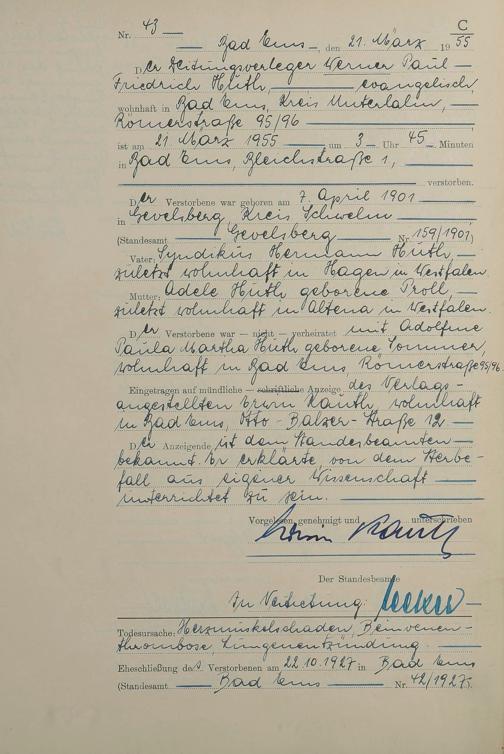 C
Nr. 43
Bad Ems, den 21. März 1955
Der Zeitungsverleger Werner Paul
Friedrich Hüth, evangelisch,
wohnhaft in Bad Ems, Kreis Unterlahn,
Römerstraße 95/96
ist am 21. März 1955 um 3 Uhr 45 Minuten
in Bad Ems, Bleichstraße 1,
verstorben.
Der Verstorbene war geboren am 7. April 1901
in Gevelsberg, Kreis Schwelm
(Standesamt Gevelsberg Nr. 159/1901)
Vater: Syndikus Hermann Hüth,
zuletzt wohnhaft in Hagen in Westfalen
Mutter: Adele Hüth geborene Proll,
zuletzt wohnhaft in Altena in Westfalen.
Der Verstorbene war – nicht – verheiratet mit Adolfine
Paula Martha Hüth geborene Sommer,
wohnhaft in Bad Ems, Römerstraße 95/96.
Eingetragen auf mündliche – schriftliche – Anzeige des Verlags-
angestellten Erwin Kauth, wohnhaft
in Bad Ems, Otto-Balzer-Straße 12.
Der Anzeigende ist dem Standesbeamten
bekannt. Er erklärte, von dem Sterbe-
fall aus eigener Wissenschaft
unterrichtet zu sein.
Vorgelesen, genehmigt und unterschrieben
Erwin Kauth
Der Standesbeamte
In Vertretung:
Todesursache: Herzmuskelschaden, Beinvenen-
thrombose, Lungenentzündung
Eheschließung des Verstorbenen am 22.10.1927 in Bad Ems
(Standesamt Bad Ems Nr. 42/1927).